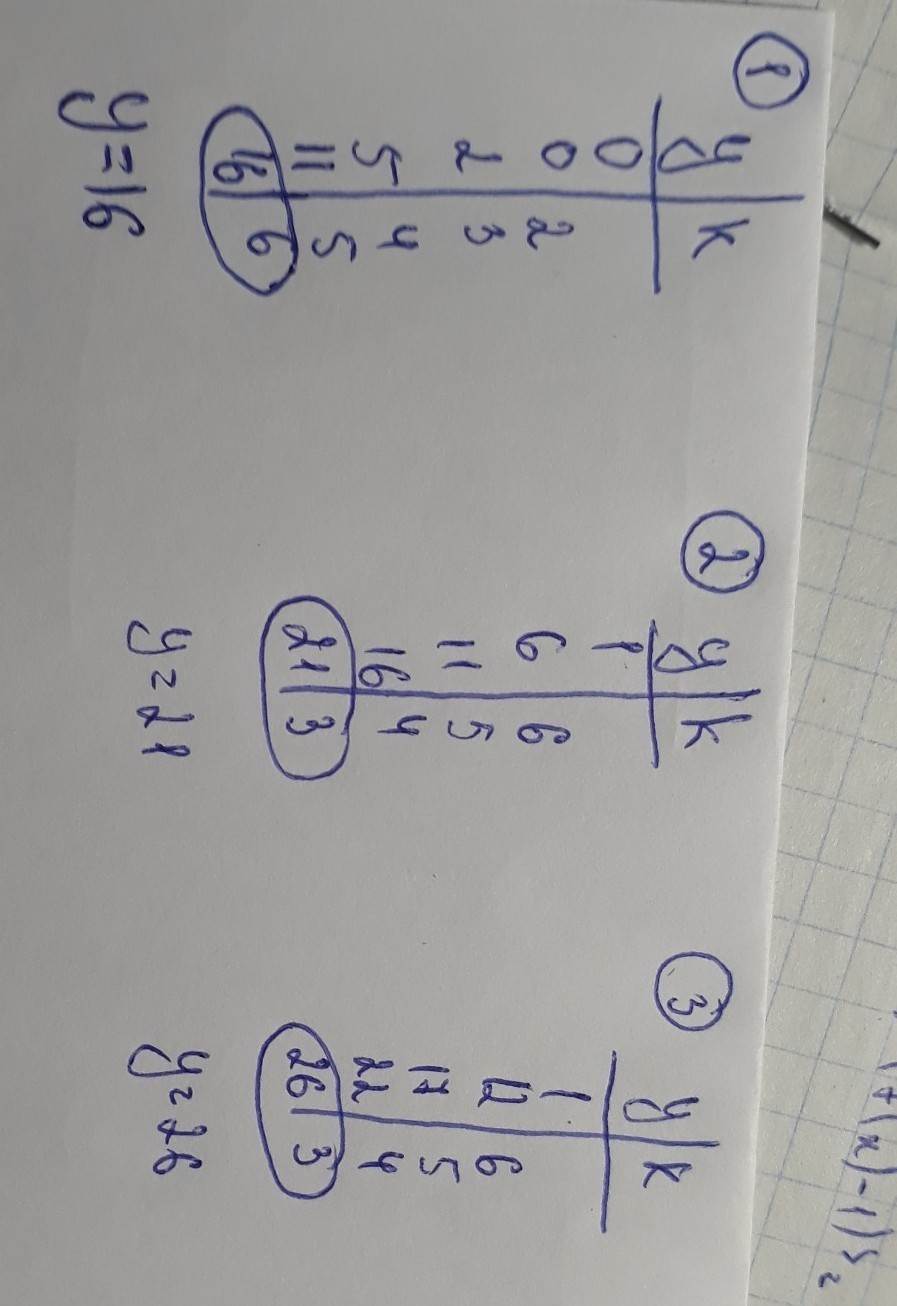 ①
y k
0
0 2
2 3
5 4
11 5
16 6
y=16
②
y k
1
6 6
11 5
16 4
21 3
y=21
③
y k
1
12 6
17 5
22 4
26 3
y=26